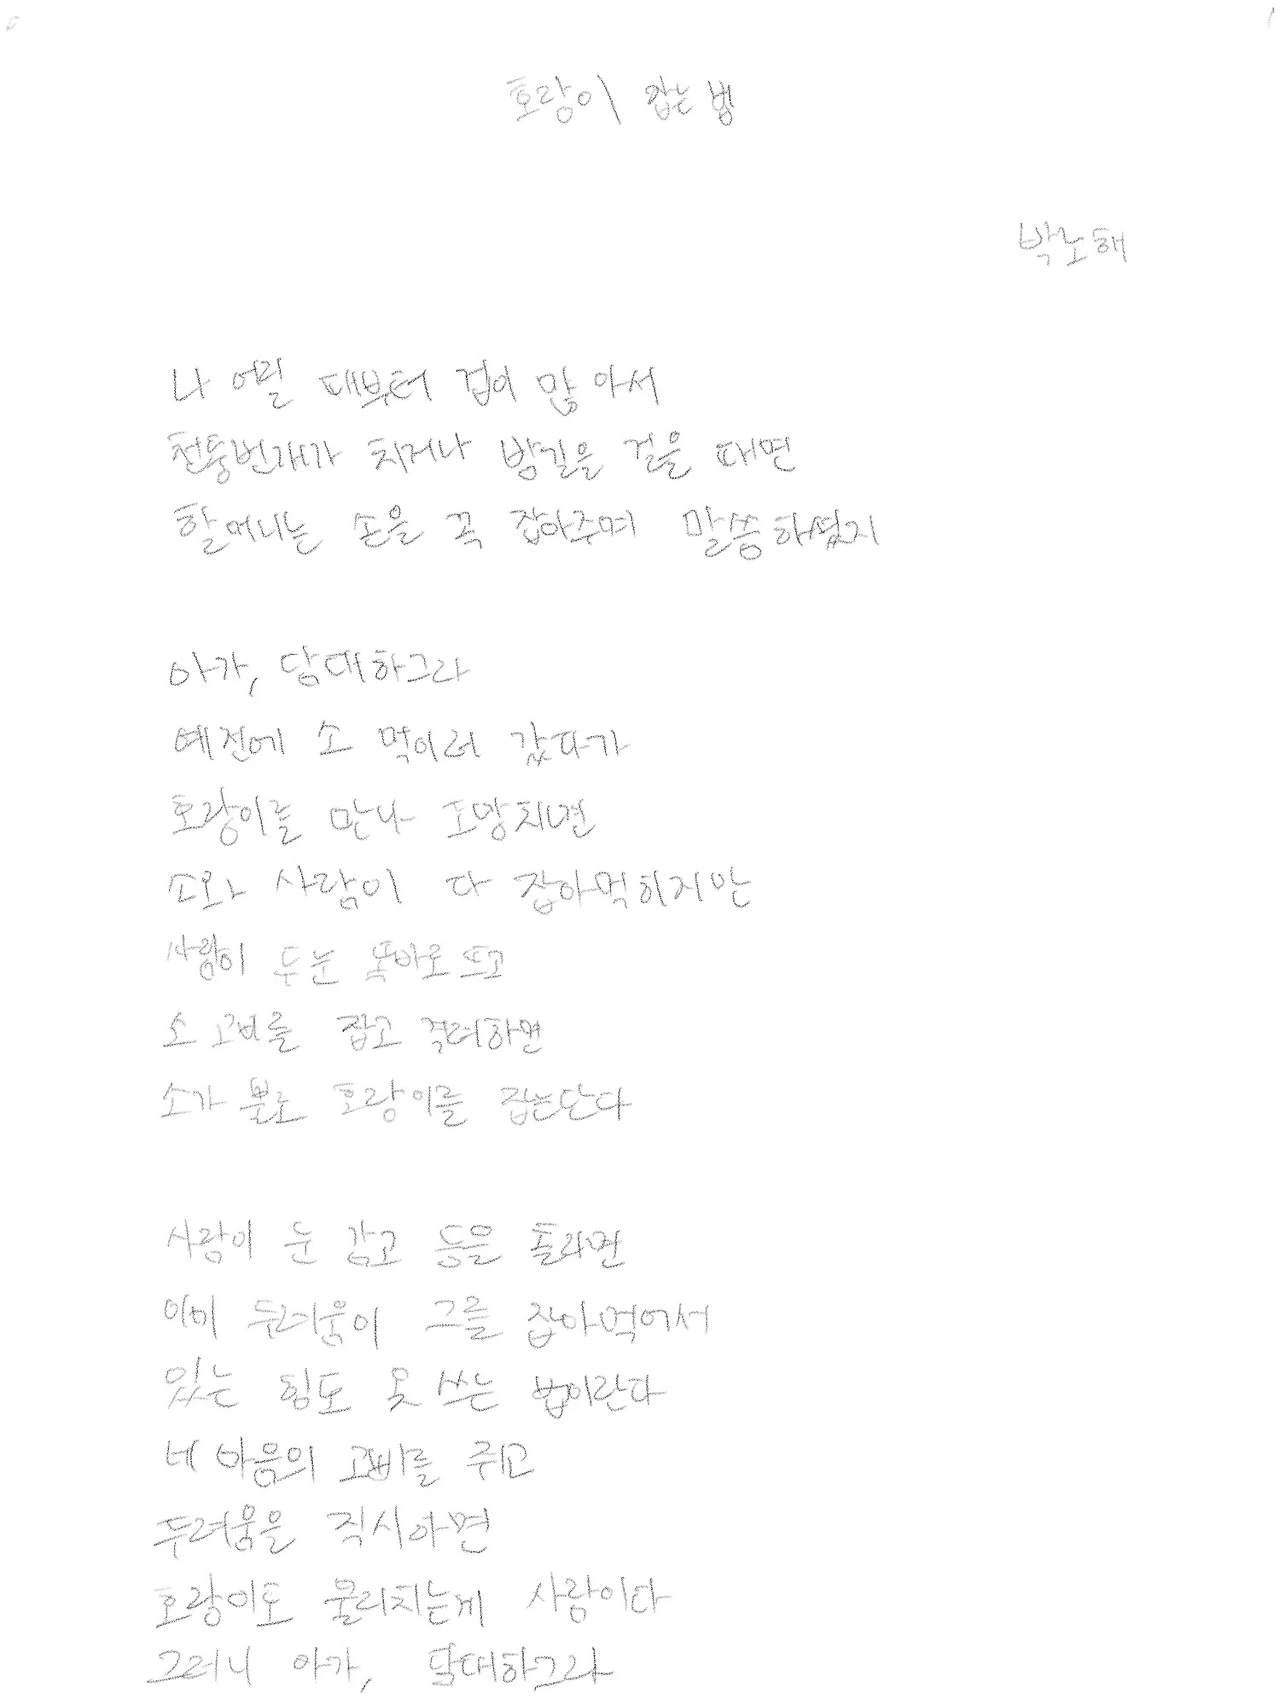 호랑이 잡는 법
박노해
나 어릴 때부터 겁이 많아서
천둥번개가 치거나 밤길을 걸을 때면
할머니는 손을 꼭 잡아주며 말씀하셨지
아가, 담대하그라
예전에 소 먹이러 갔다가
호랑이를 만나 도망치면
소와 사람이 다 잡아먹히지만
사람이 두 눈 똑바로 뜨고
소 고삐를 잡고 격려하면
소가 뿔로 호랑이를 잡는단다
사람이 눈 감고 등을 돌리면
이미 두려움이 그를 잡아먹어서
있는 힘도 못 쓰는 법이란다
네 마음의 고삐를 쥐고
두려움을 직시하면
호랑이도 물리치는게 사람이다
그러니 아가, 담대하그라